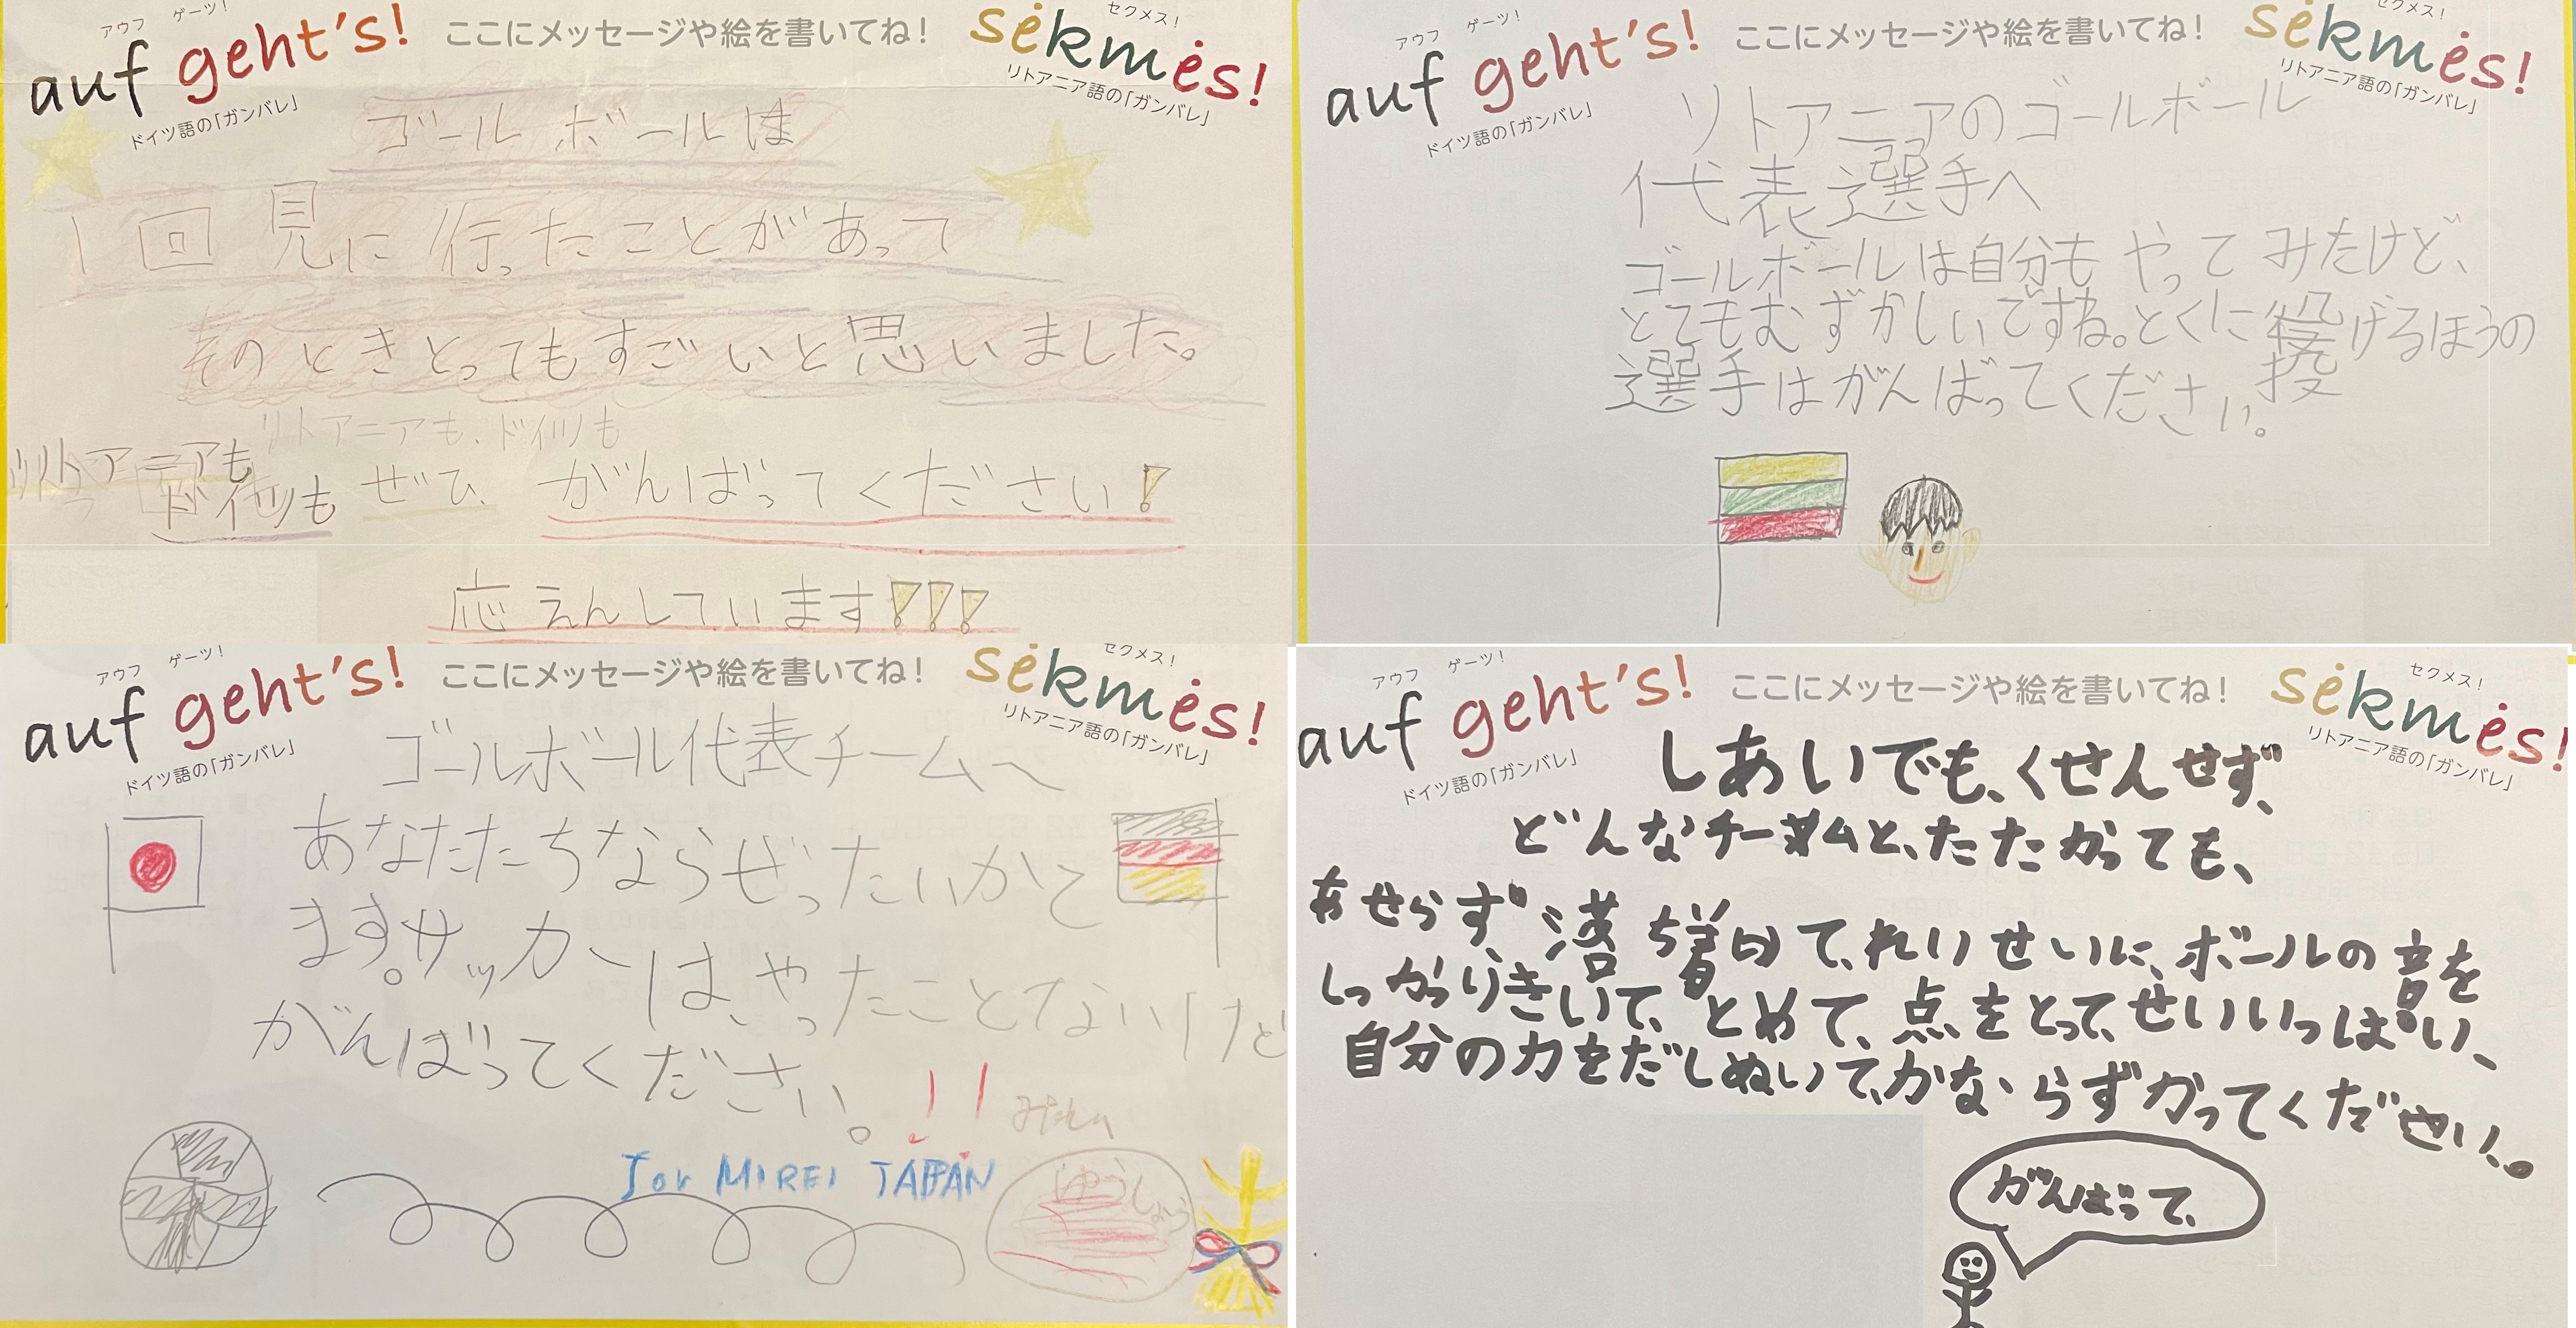 アウフ ゲーツ!
auf geht's!
ドイツ語の「ガンバレ」
ここにメッセージや絵を書いてね!
セクメス!
sėkmės!
リトアニア語の「ガンバレ」
ゴールボールは
1回見に行ったことがあって
そのときとってもすごいと思いました。
リトアニアも、ドイツも
リトアニアも
ドイツも ぜひ、がんばってください!
応えんしています!!!
アウフ ゲーツ!
auf geht's!
ドイツ語の「ガンバレ」
ここにメッセージや絵を書いてね!
セクメス!
sėkmės!
リトアニア語の「ガンバレ」
リトアニアのゴールボール
代表選手へ
ゴールボールは自分もやってみたけど、
とてもむずかしいですね。とくに投げるほうの
選手はがんばってください。
アウフ ゲーツ!
auf geht's!
ドイツ語の「ガンバレ」
ここにメッセージや絵を書いてね!
セクメス!
sėkmės!
リトアニア語の「ガンバレ」
ゴールボール代表チームへ
あなたたちならぜったいかて
ます。サッカーはやったことないけど
がんばってください。!!
MIREI JAPAN
ゆうしょう
アウフ ゲーツ!
auf geht's!
ドイツ語の「ガンバレ」
ここにメッセージや絵を書いてね!
セクメス!
sėkmės!
リトアニア語の「ガンバレ」
しあいでも、くせんせず、
どんなチームと、たたかっても、
あせらず、落ち着いて、れいせいに、ボールの音を
しっかりきいて、とめて、点をとって、せいいっぱい、
自分の力をだしぬいて、かならずかってください。
がんばって、